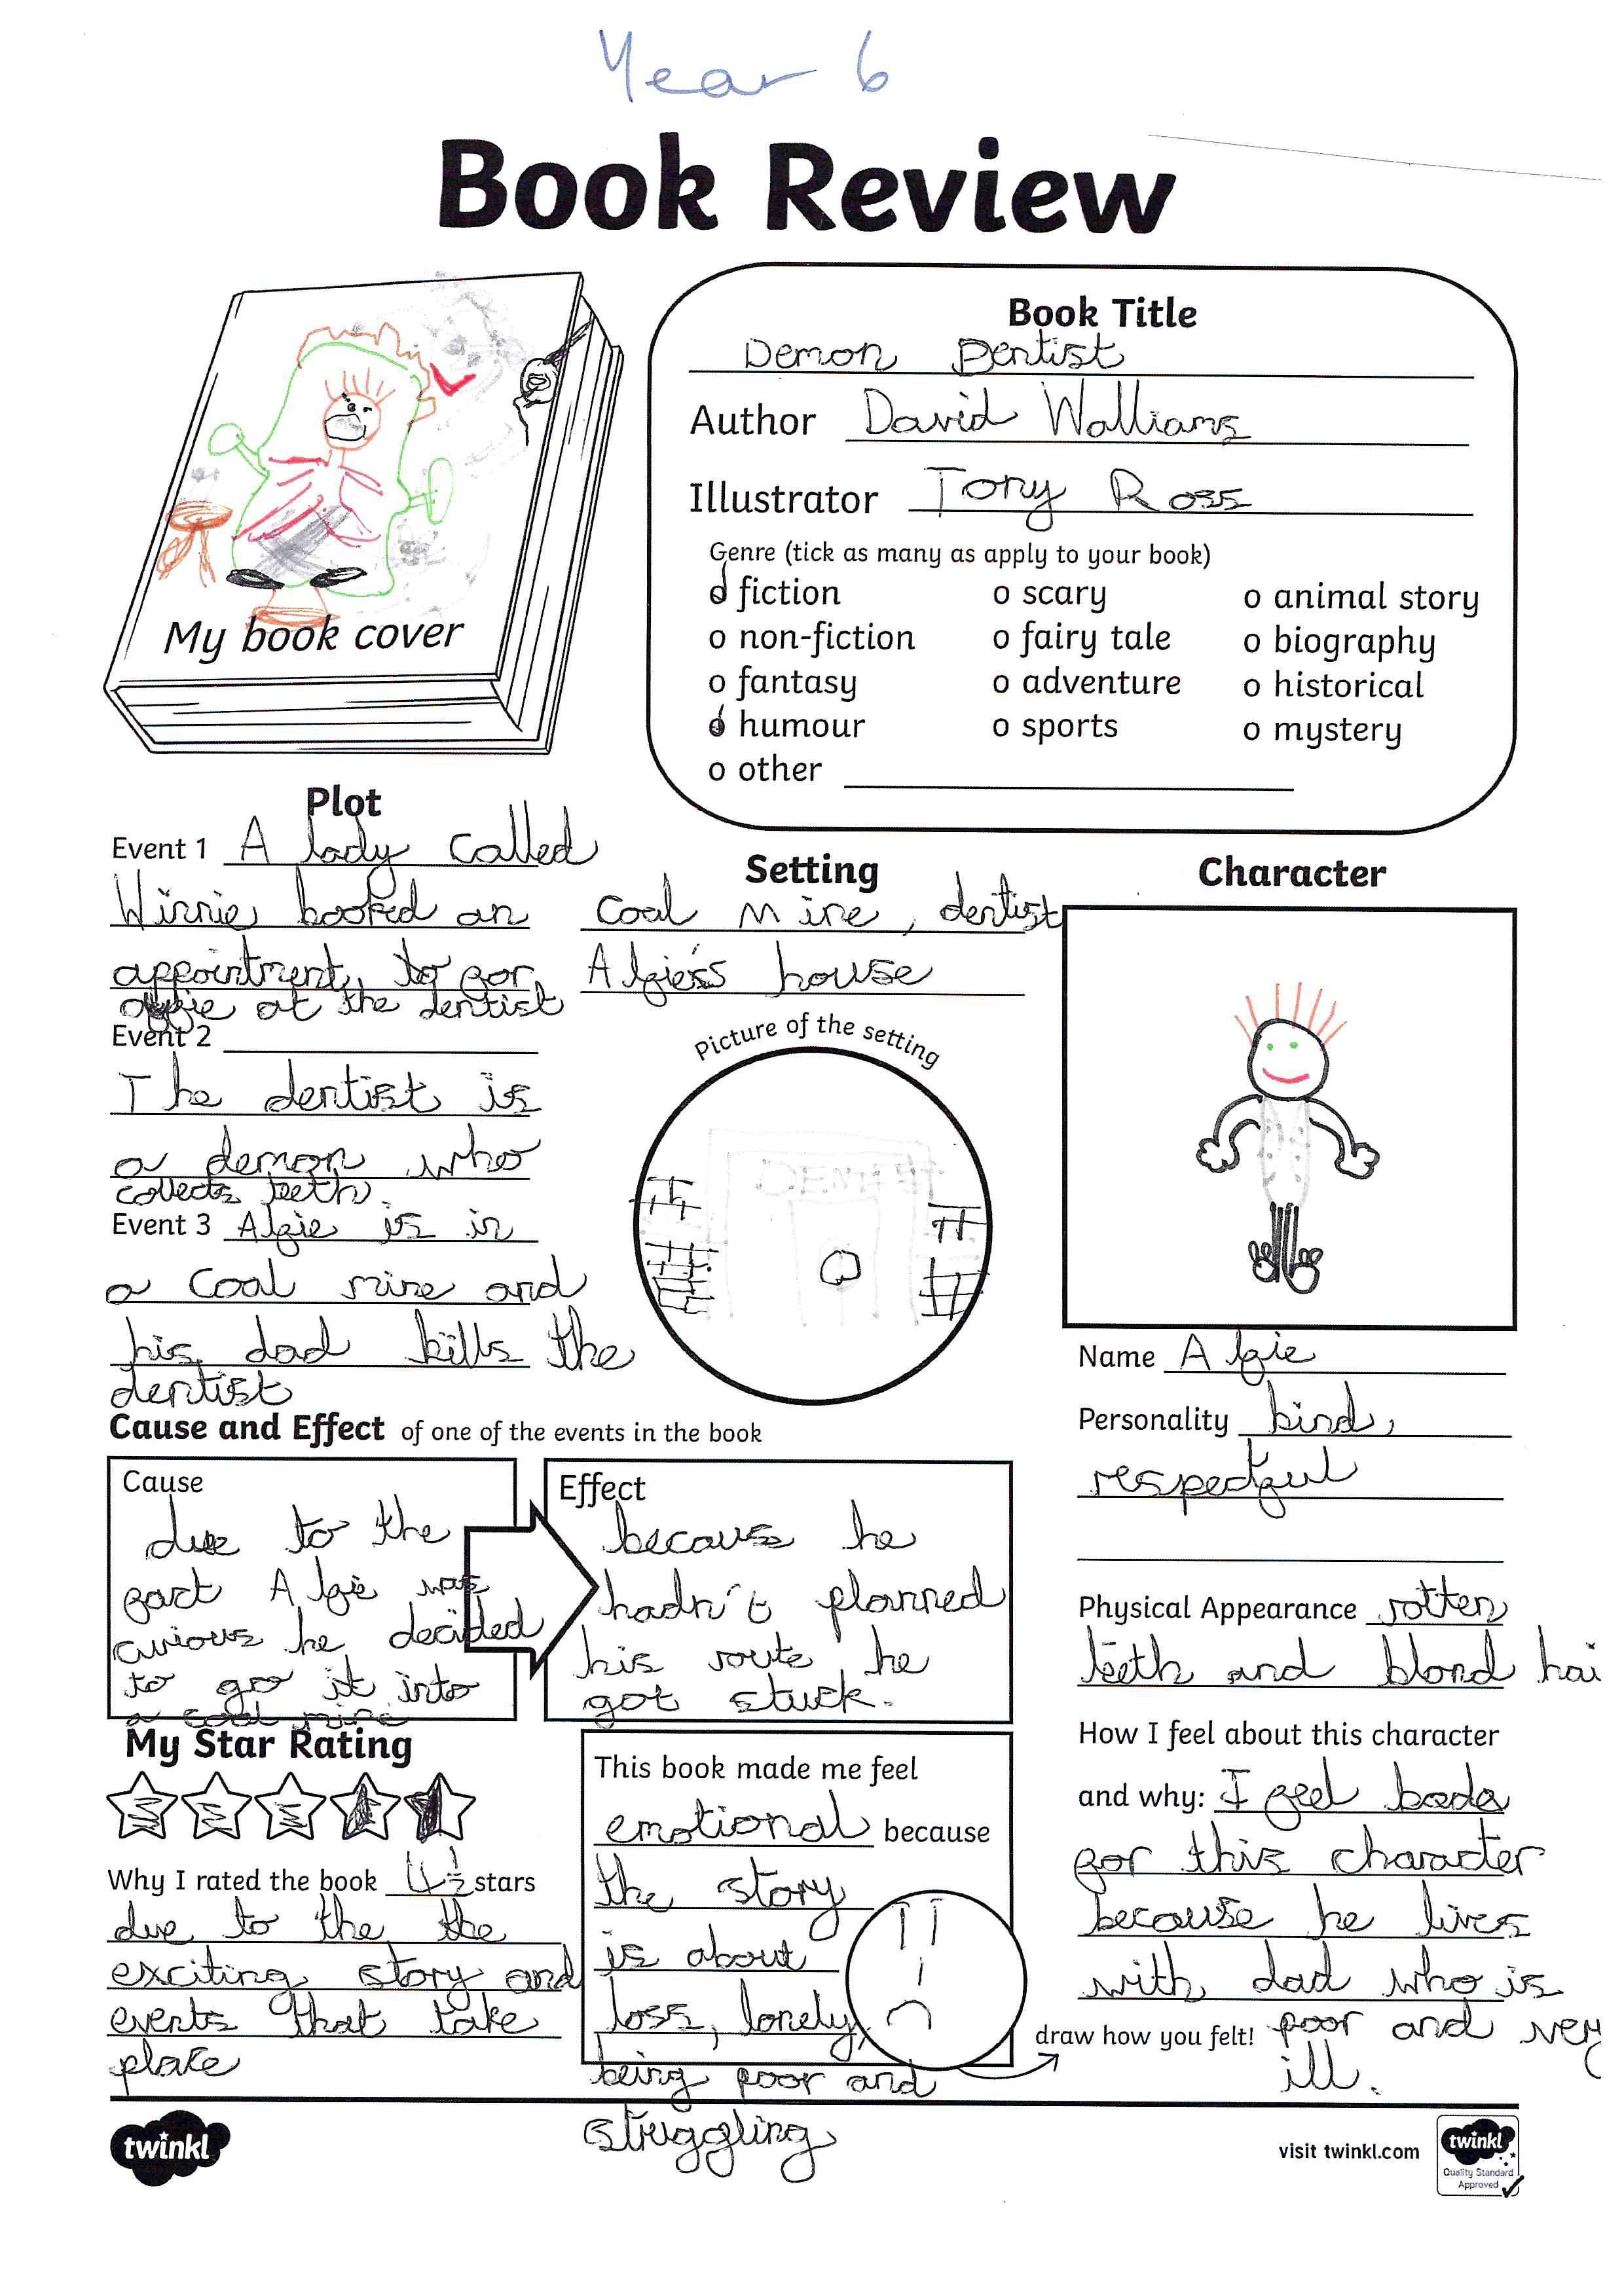 Year 6
Book Review
My book cover
Book Title
Demon Dentist
Author David Walliams
Illustrator Tony Ross
Genre (tick as many as apply to your book)
o fiction
o non-fiction
o fantasy
o humour
o other
o scary
o fairy tale
o adventure
o sports
o animal story
o biography
o historical
o mystery
Plot
Event 1 A lady called
Winnie booked an
appointment, to for
alfie at the dentist
Event 2
The dentist is
a demon who
collects teeth.
Event 3 Alfie is in
a coal mine and
his dad kills the
dentist
Setting
coal Mine, dentist
Alfie's house
Picture of the setting
DENTIST
Character
Name Alfie
Personality kind,
respectful
Physical Appearance rotten
teeth and blond hai
How I feel about this character
and why: I feel
for this character
because he lives
with dad who is
poor and very
ill.
Cause and Effect of one of the events in the book
Cause
due to the
fact Alfie was
curious he decided
to go it into
a coal mine
Effect
becaus he
hadn't planned
his route he
got stuck.
My Star Rating
Why I rated the book 4½ stars
due to the the
exciting story and
events that take
place
This book made me feel
emotional because
the story
is about
loss, lonely,
being poor and
struggling
draw how you felt!
twinkl
visit twinkl.com
twinkl
Quality Standard
Approved